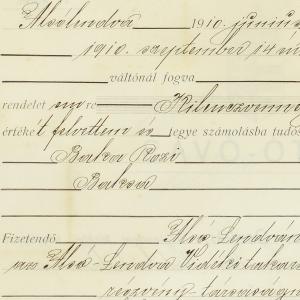 Alsólendva 1910. június
1910. szeptember 14
váltónál fogva
rendelet re Kilenczven
értéket felvettem és tegye számolásba tudós
Baksa Rozi
Baksa
Fizetendő Alsó-Lendván
az Alsó-Lendva Vidéki takaré
részvény-társaság